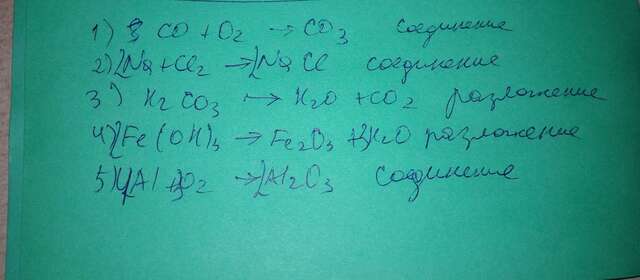 1) CO + O2 → CO3 соединение
2) 2Na + Cl2 → 2NaCl соединение
3) H2CO3 → H2O + CO2 разложение
4) 2Fe(OH)3 → Fe2O3 + 3H2O разложение
5) 4Al + 3O2 → 2Al2O3 соединение